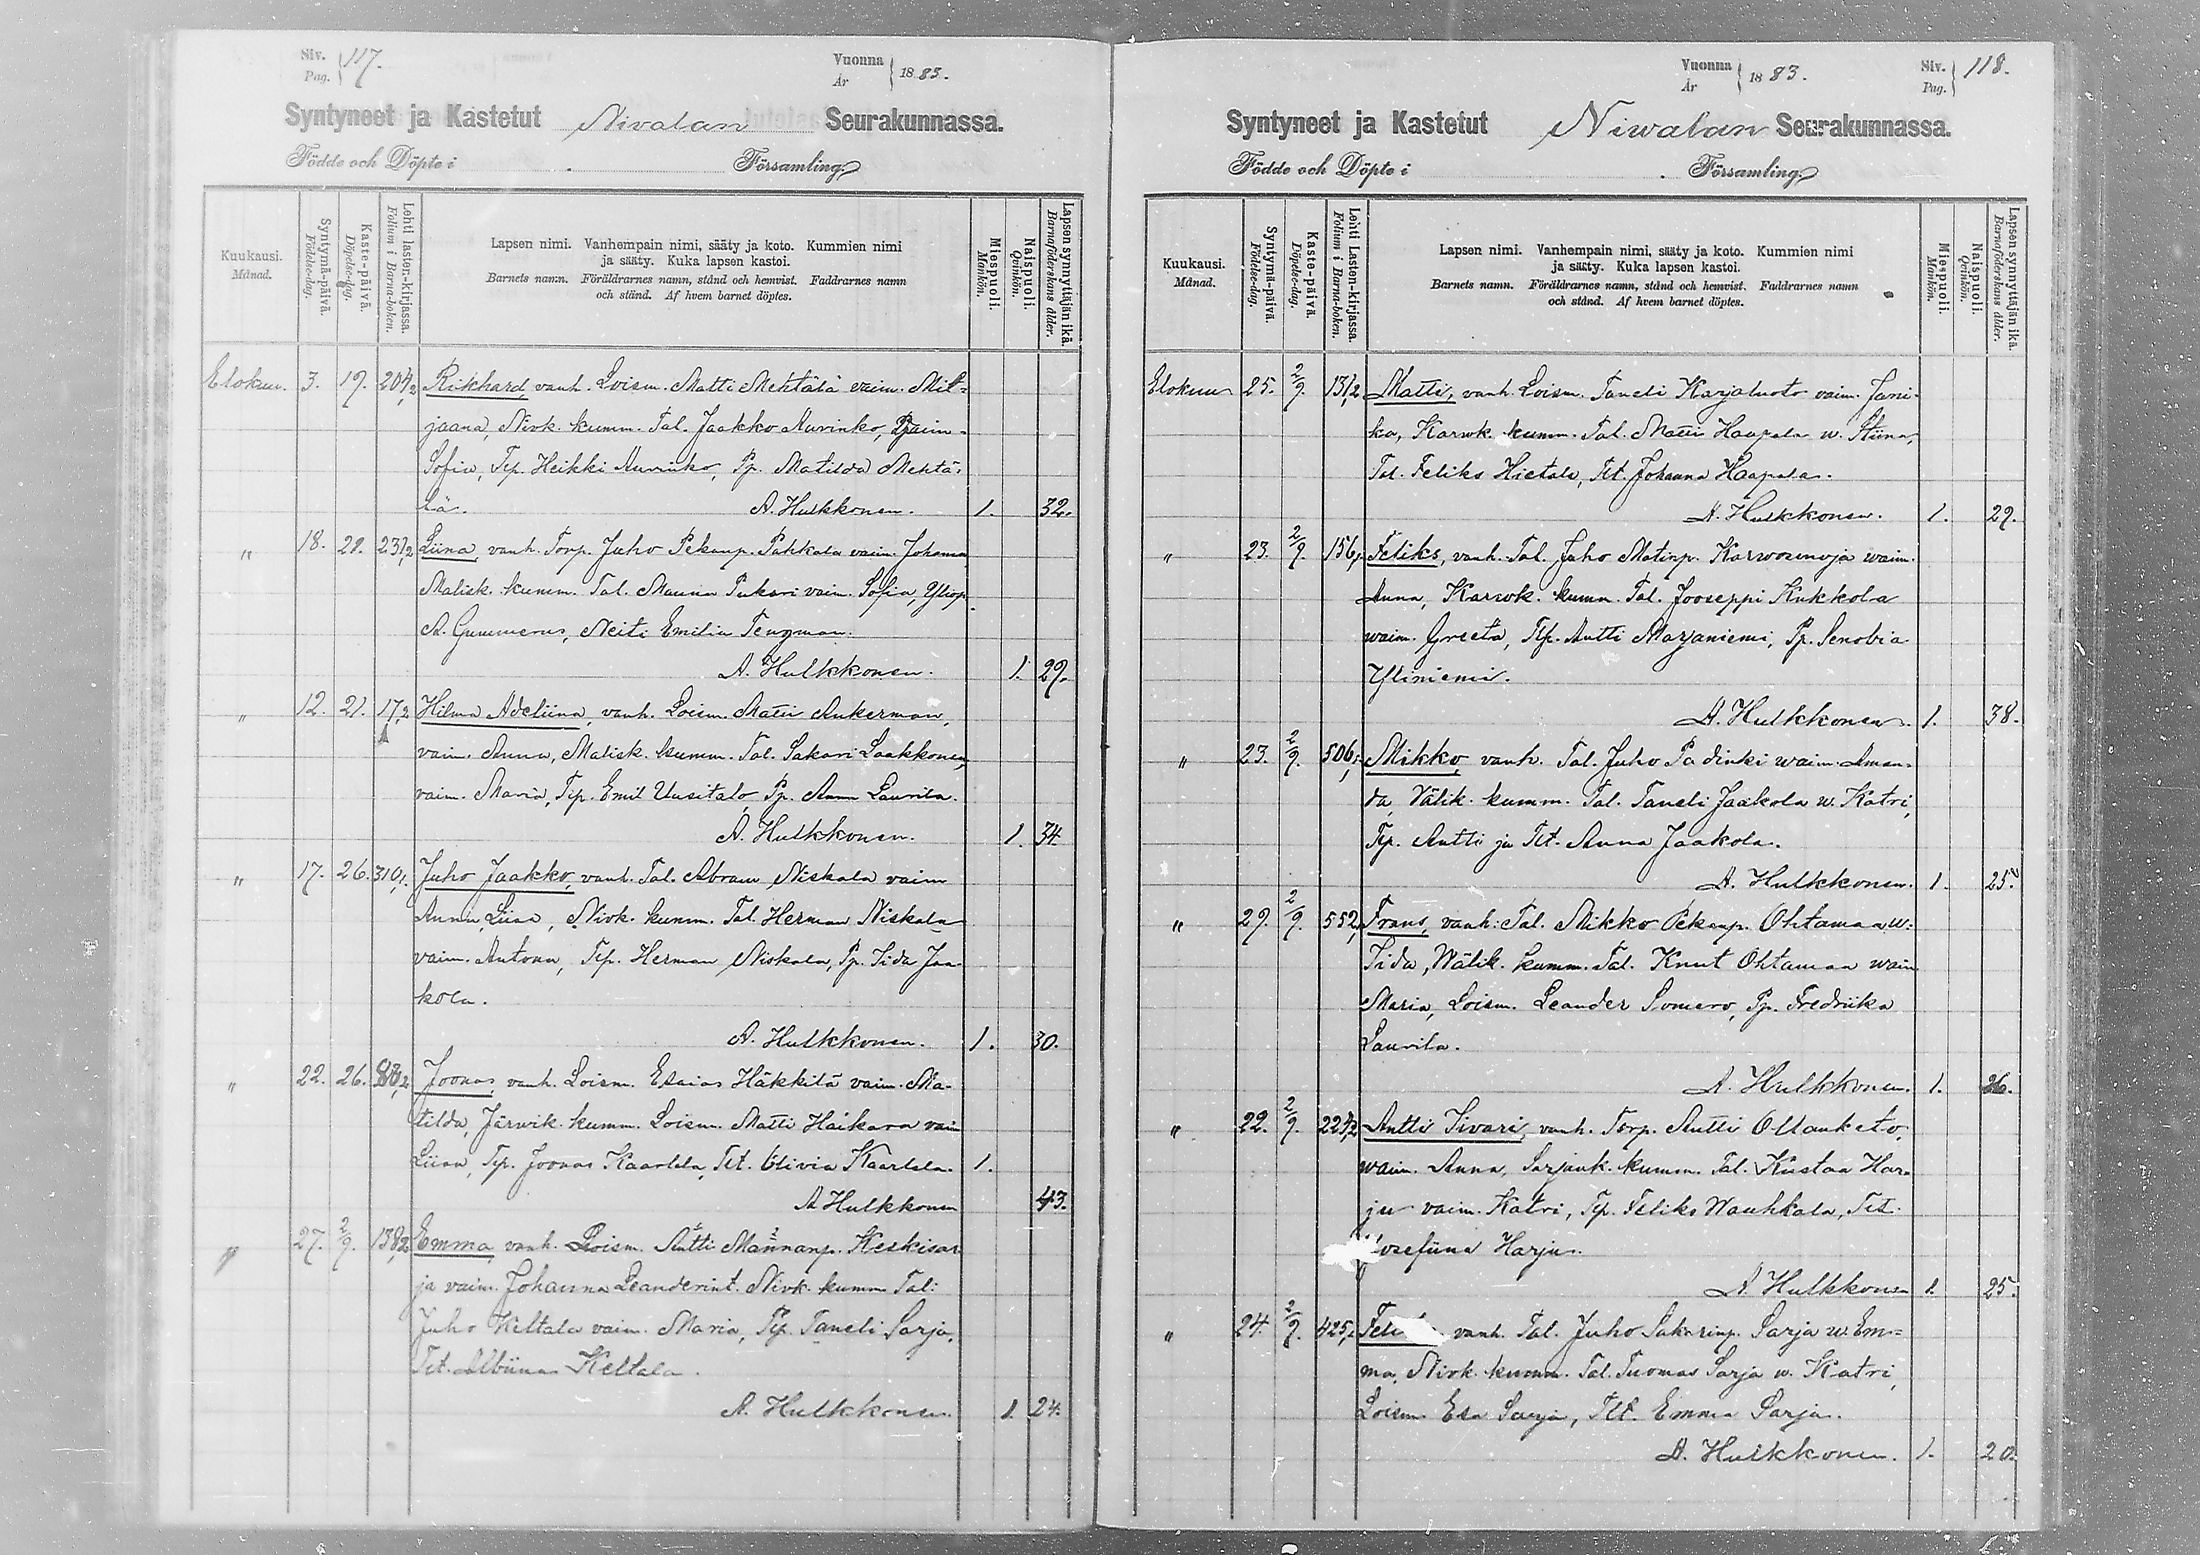 Siv. 117.
Pag.
Vuonna 1883.
År
Syntyneet ja Kastetut Nivalan Seurakunnassa.
Födde och Döpte i Församling
Kuukausi.
Månad.
Syntymä-päivä.
Födelse-dag.
Kaste-päivä.
Döpelse-dag.
Lehti lasten-kirjassa.
Folium i Barna-boken.
Lapsen nimi. Vanhempain nimi, sääty ja koto. Kummien nimi
ja sääty. Kuka lapsen kastoi.
Barnets namn. Föräldrarnes namn, stånd och hemvist. Faddrarnes namn
och stånd. Af hvem barnet döptes.
Miespuoli.
Mankön.
Naispuoli.
Qvinkön.
Lapsen synnyttäjän ikä.
Barnaföderskans ålder.
Elokuu. 3. 19. 204,2 Rikhard, vanh. Loism. Matti Mehtälä vaim. Mil-
jaana, Nivk. kumm. Tal. Jaakko Aurinko, vaim.
Sofia, Tp. Heikki Aurinko, Pp. Matilda Mehtä-
lä. A. Hulkkonen. 1. 32.
" 18. 21. 231,2 Liina, vanh. Torp. Juho Pekanp. Pahkala vaim. Johanna
Malisk. kumm. Tal. Mauna Pukari vaim. Sofia, Yliop.
A. Gummerus, Neiti Emilia Tengman.
A. Hulkkonen. 1. 29.
" 12. 21. 17,2 Hilma Adeliina, vanh. Loism. Matti Ankerman,
vaim. Anna, Malisk. kumm. Tal. Sakari Laakkonen,
vaim. Maria, Tp. Emil Uusitalo, Pp. Anna Laurila.
A. Hulkkonen. 1. 34.
" 17. 26. 310,1. Juho Jaakko, vanh. Tal. Abram Niskala vaim
Anna Liisa, Nivk. kumm. Tal. Herman Niskala
vaim. Antona, Tp. Herman Niskala, Pp. Iida Jaa-
kola.
A. Hulkkonen. 1. 30.
" 22. 26. Joonas, vanh. Loism. Esaias Häkkilä vaim. Ma-
tilda, Järwik. kumm. Loism. Matti Haikara vaim
Liisa, Tp. Joonas Kaarlela, Tt. Olivia Kaarlela. 1.
A Hulkkonen 43.
" 27. 2/9. 138,2 Emma, vanh. Loism. Antti Mannanp. Keskisar-
ja vaim. Johanna Leanderint. Nivk. kumm Tal:
Juho Keltala vaim. Maria, Tp. Taneli Sarja,
Tt. Albiina Keltala.
A. Hulkkonen. 1. 24.
Vuonna 1883.
År
Siv. 118.
Pag.
Syntyneet ja Kastetut Niwalan Seurakunnassa.
Födde och Döpte i Församling
Kuukausi.
Månad.
Syntymä-päivä.
Födelse-dag.
Kaste-päivä.
Döpelse-dag.
Lehti Lasten-kirjassa.
Folium i Barna-boken.
Lapsen nimi. Vanhempain nimi, sääty ja koto. Kummien nimi
ja sääty. Kuka lapsen kastoi.
Barnets namn. Föräldrarnes namn, stånd och hemvist. Faddrarnes namn
och stånd. Af hvem barnet döptes.
Miespuoli.
Mankön.
Naispuoli.
Qvinkön.
Lapsen synnyttäjän ikä.
Barnaföderskans ålder.
Elokuu 25. 2/9. 131,2 Matti, vanh. Loism. Taneli Karjaluoto vaim. Janni-
ka, Karwk. kumm. Tal. Matti Haapala w. Stiina,
Tal. Feliks Hietala, Tt. Johanna Haapala.
A. Hulkkonen. 1. 29.
" 23. 2/9. 156, Feliks, vanh. Tal. Juho Matinp. Karwosenoja waim.
Anna, Karwk. kumm. Tal. Jooseppi Kukkola
waim. Greeta, Tp. Antti Marjaniemi, Pp. Senobia
Yliniemi.
A. Hulkkonen. 1. 38.
" 23. 2/9. 506, Mikko, vanh. Tal. Juho Padinki waim. Aman-
da, Välik. kumm. Tal. Taneli Jaakola w. Katri,
Tp. Antti ja Tt. Anna Jaakola.
A. Hulkkonen. 1. 25.
" 29. 2/9. 552, Frans, vanh: Tal. Mikko Pekanp. Ohtamaa w:
Iida, Wälik. kumm. Tal. Knut Ohtamaa waim
Maria, Loism. Leander Somero, Pp. Fredriika
Laurila.
A. Hulkkonen. 1. 26.
" 22. 2/9. 224,2 Antti Iivari, vanh. Torp. Antti Ollanketo,
waim. Anna, Sarjank. kumm. Tal. Kustaa Har-
ju vaim. Katri, Tp. Feliks Wauhkala, Tt.
Josefiina Harju.
A. Hulkkonen 1. 25.
" 24. 2/9. 425, vanh. Tal. Juho Sakarinp. Sarja w. Em-
ma, Nivk. kumm. Tal. Tuomas Sarja w. Katri,
Loism. Esa Sarja, Tt. Emma Sarja.
A. Hulkkonen. 1. 20.